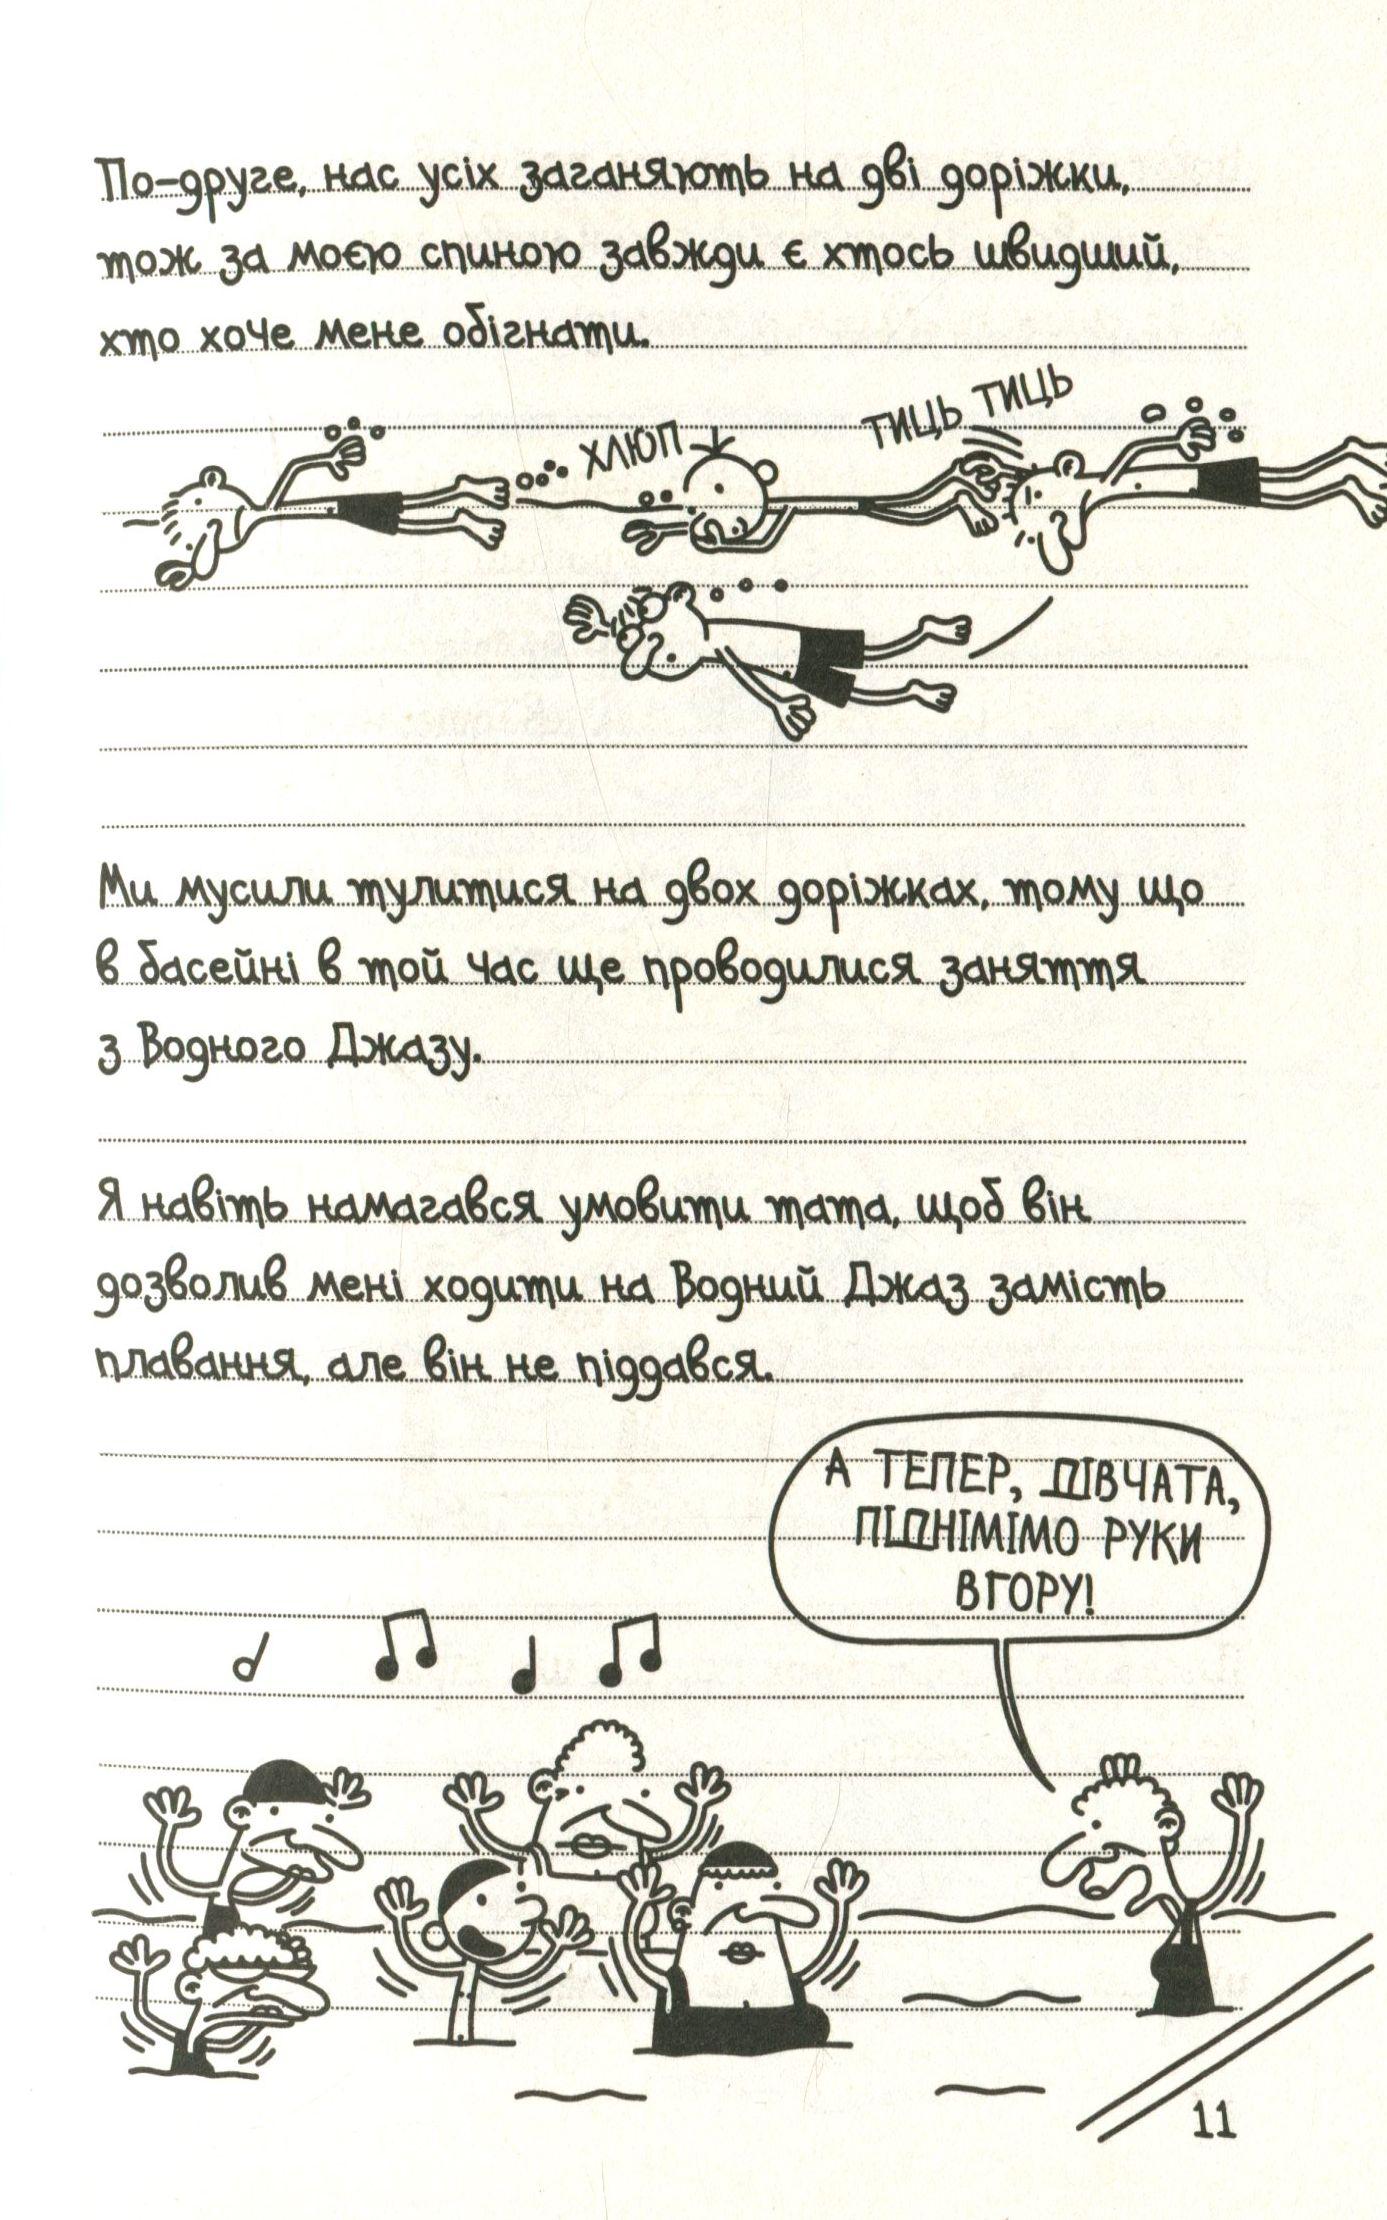 По-друге, нас усіх заганяють на дві доріжки,
тож за моєю спиною завжди є хтось швидший,
хто хоче мене обігнати.
ХЛЮП
ТИЦЬ ТИЦЬ
Ми мусили тулитися на двох доріжках, тому що
в басейні в той час ще проводилися заняття
з Водного Джазу.
Я навіть намагався умовити тата, щоб він
дозволив мені ходити на Водний Джаз замість
плавання, але він не піддався.
А ТЕПЕР, ДІВЧАТА,
ПІДНІМІМО РУКИ
ВГОРУ!
11